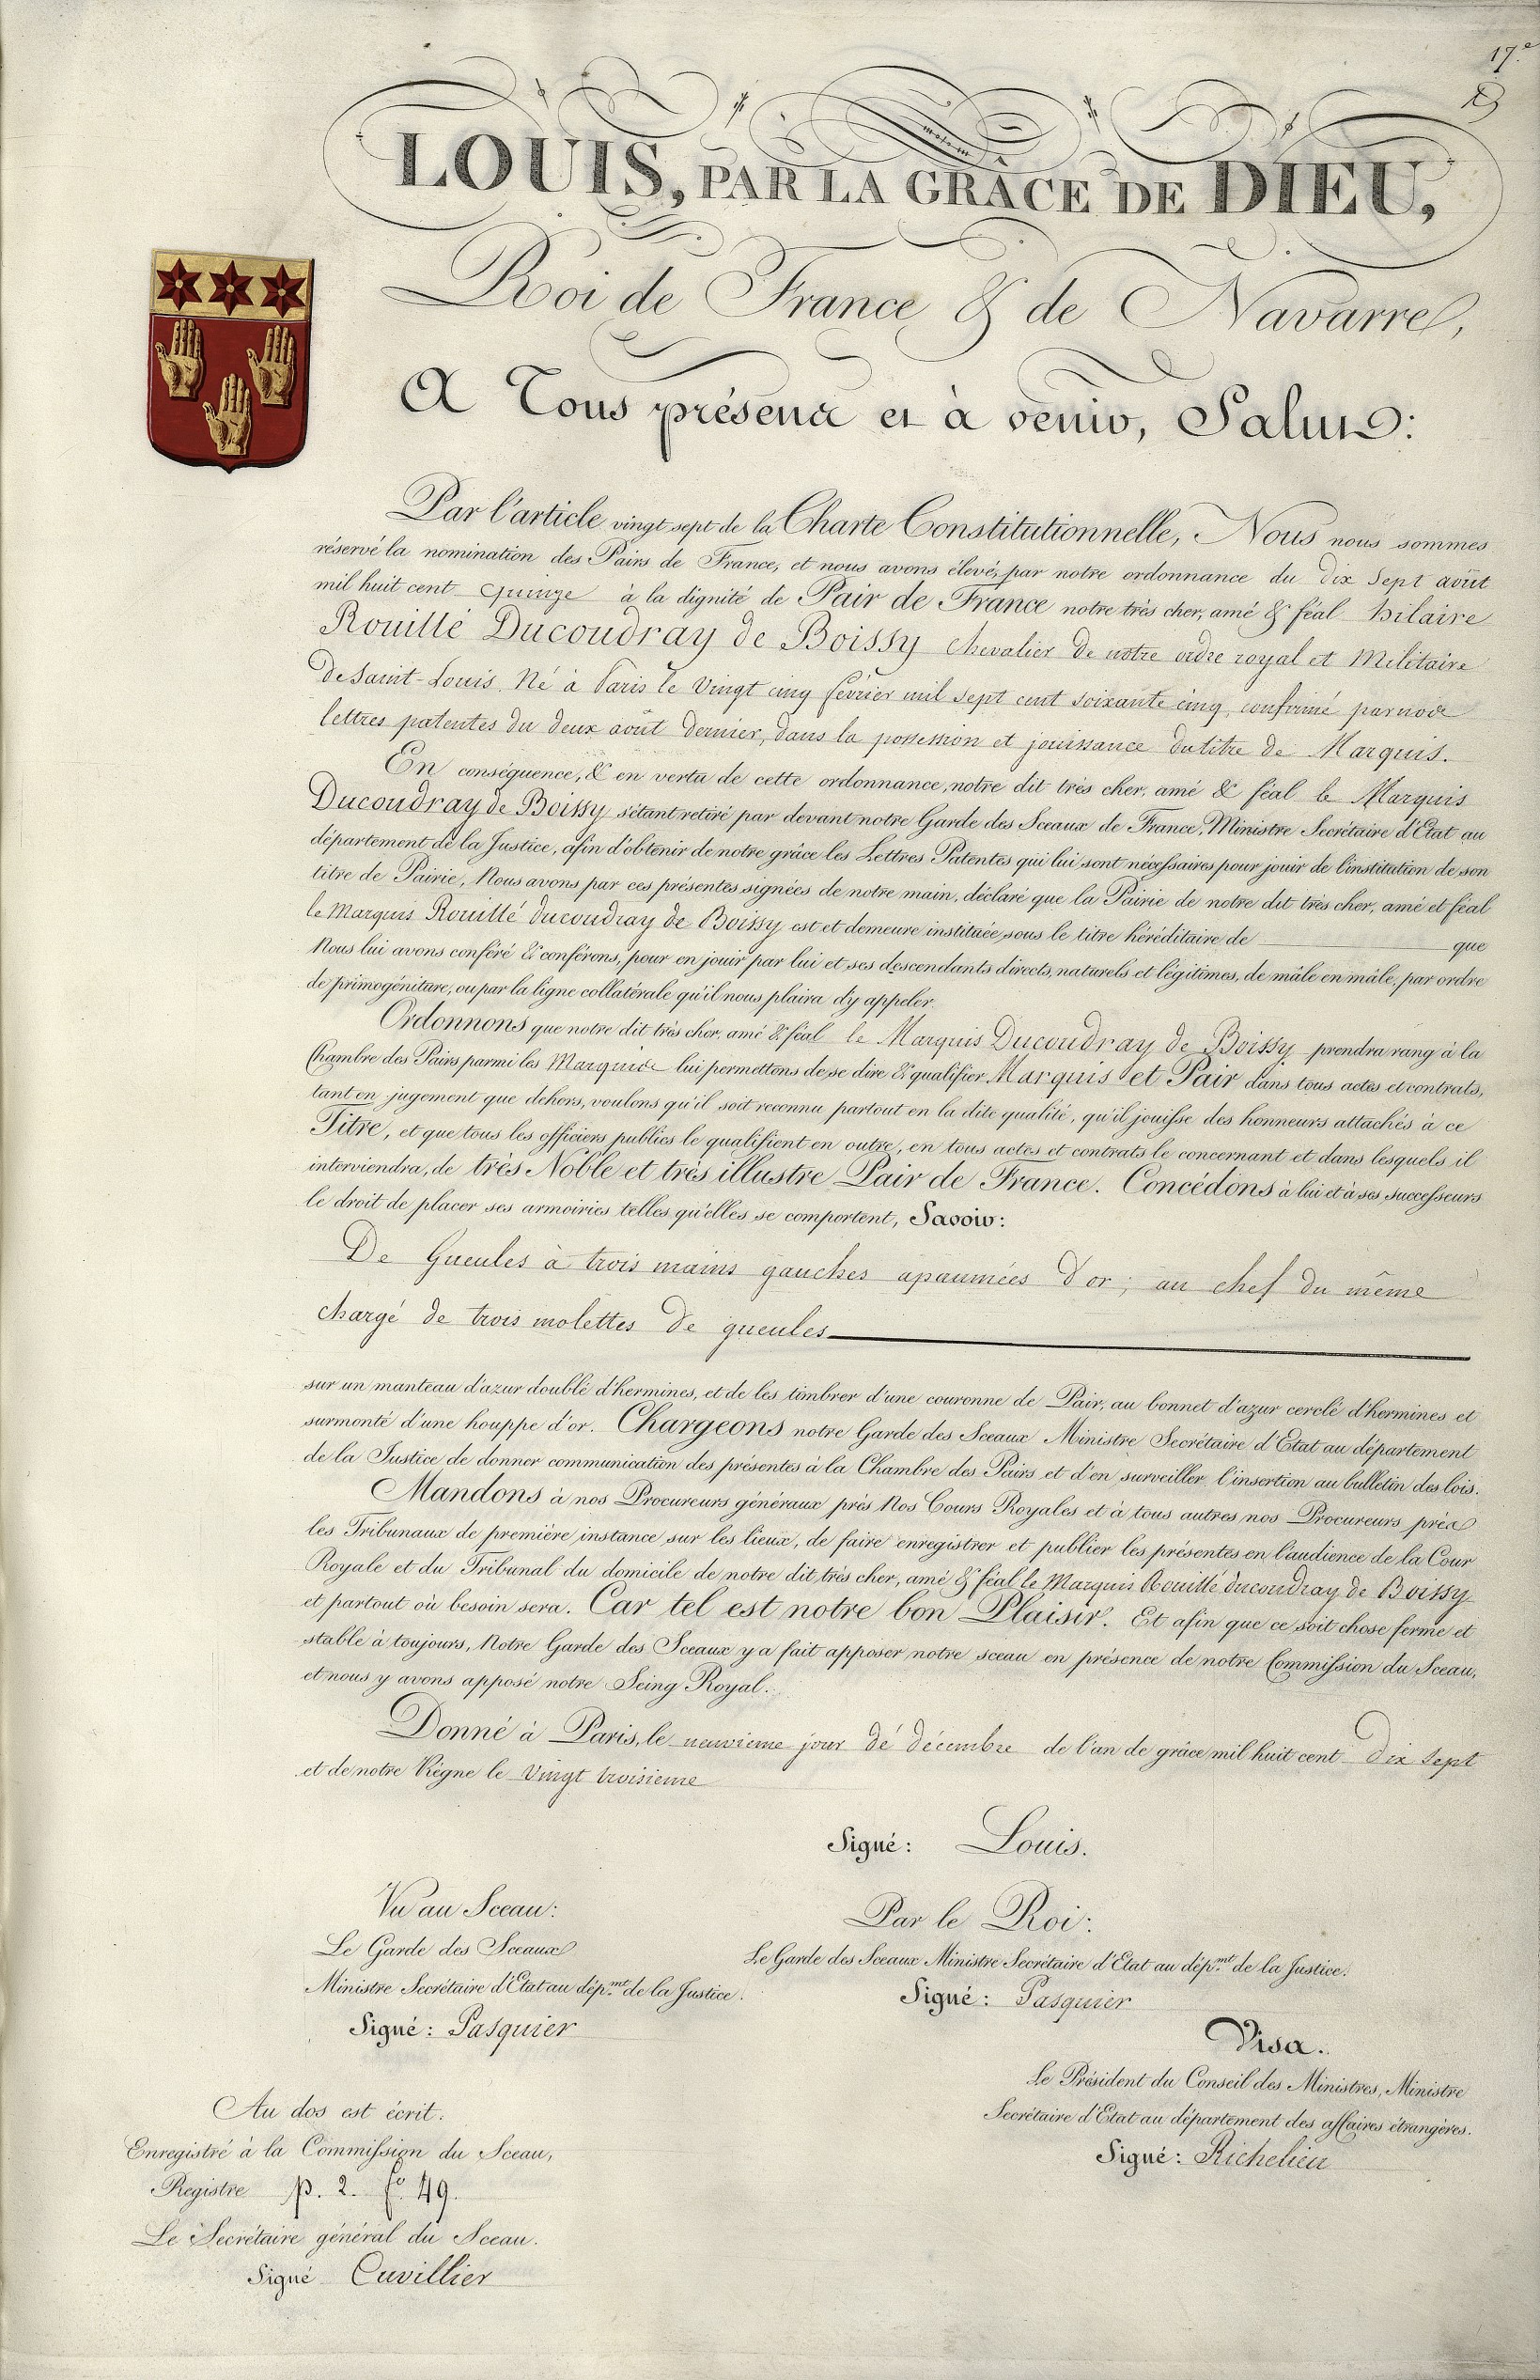 17.e
LOUIS, PAR LA GRÂCE DE DIEU,
Roi de France & de Navarre,
A Tous présens et à venir, Salut:
Par l'article vingt sept de la Charte Constitutionnelle, Nous nous sommes
réservé la nomination des Pairs de France, et nous avons élevé, par notre ordonnance du dix Sept août
mil huit cent quinze à la dignité de Pair de France notre très cher, amé & féal hilaire
Rouillé Ducoudray de Boissy chevalier de notre ordre royal et Militaire
de Saint-Louis. Né à Paris le Vingt cinq février mil sept cent soixante cinq, confirmé par nos
lettres patentes du deux août dernier, dans la possession et jouissance du titre de Marquis.
En conséquence, & en vertu de cette ordonnance, notre dit très cher, amé & féal le Marquis
Ducoudray de Boissy s'étant retiré par devant notre Garde des Sceaux de France, Ministre Secrétaire d'Etat au
département de la Justice, afin d'obtenir de notre grâce les Lettres Patentes qui lui sont nécessaires pour jouir de l'institution de son
titre de Pairie, Nous avons par ces présentes signées de notre main, déclaré que la Pairie de notre dit très cher, amé et féal
le Marquis Rouillé ducoudray de Boissy est et demeure instituée sous le titre héréditaire de que
Nous lui avons conféré & conférons, pour en jouir par lui et ses descendants directs, naturels et légitimes, de mâle en mâle, par ordre
de primogéniture, ou par la ligne collatérale qu'il nous plaira d'y appeler.
Ordonnons que notre dit très cher, amé & féal le Marquis Ducoudray de Boissy prendra rang à la
Chambre des Pairs parmi les Marquis lui permettons de se dire & qualifier Marquis et Pair dans tous actes et contrats,
tant en jugement que dehors, voulons qu'il soit reconnu partout en la dite qualité, qu'il jouisse des honneurs attachés à ce
Titre, et que tous les officiers publics le qualifient en outre, en tous actes et contrats le concernant et dans lesquels il
interviendra, de très Noble et très illustre Pair de France. Concédons à lui et à ses successeurs
le droit de placer ses armoiries telles qu'elles se comportent, Savoir:
De Gueules à trois mains gauches apaumées d'or; au chef du même
chargé de trois molettes de gueules
sur un manteau d'azur doublé d'hermines, et de les timbrer d'une couronne de Pair, au bonnet d'azur cerclé d'hermines et
surmonté d'une houppe d'or. Chargeons notre Garde des Sceaux Ministre Secrétaire d'Etat au département
de la Justice de donner communication des présentes à la Chambre des Pairs et d'en surveiller l'insertion au bulletin des lois.
Mandons à nos Procureurs généraux près Nos Cours Royales et à tous autres nos Procureurs près
les Tribunaux de première instance sur les lieux, de faire enregistrer et publier les présentes en l'audience de la Cour
Royale et du Tribunal du domicile de notre dit très cher, amé & féal le Marquis Rouillé ducoudray de Boissy
et partout où besoin sera. Car tel est notre bon Plaisir. Et afin que ce soit chose ferme et
stable à toujours, Notre Garde des Sceaux y a fait apposer notre sceau en présence de notre Commission du Sceau,
et nous y avons apposé notre Seing Royal.
Donné à Paris, le neuvieme jour dé décembre de l'an de grâce mil huit cent dix Sept
et de notre Règne le Vingt troisieme
Signé: Louis.
Vu au Sceau:
Le Garde des Sceaux
Ministre Secrétaire d'Etat au dép.mt de la Justice.
Signé: Pasquier
Par le Roi:
Le Garde des Sceaux Ministre Secrétaire d'Etat au dép.mt de la Justice.
Signé: Pasquier
Visa.
Le Président du Conseil des Ministres, Ministre
Secrétaire d'Etat au département des affaires étrangères.
Signé: Richelieu
Au dos est écrit:
Enregistré à la Commission du Sceau,
Registre p. 2. fo. 49.
Le Secrétaire général du Sceau.
Signé Cuvillier